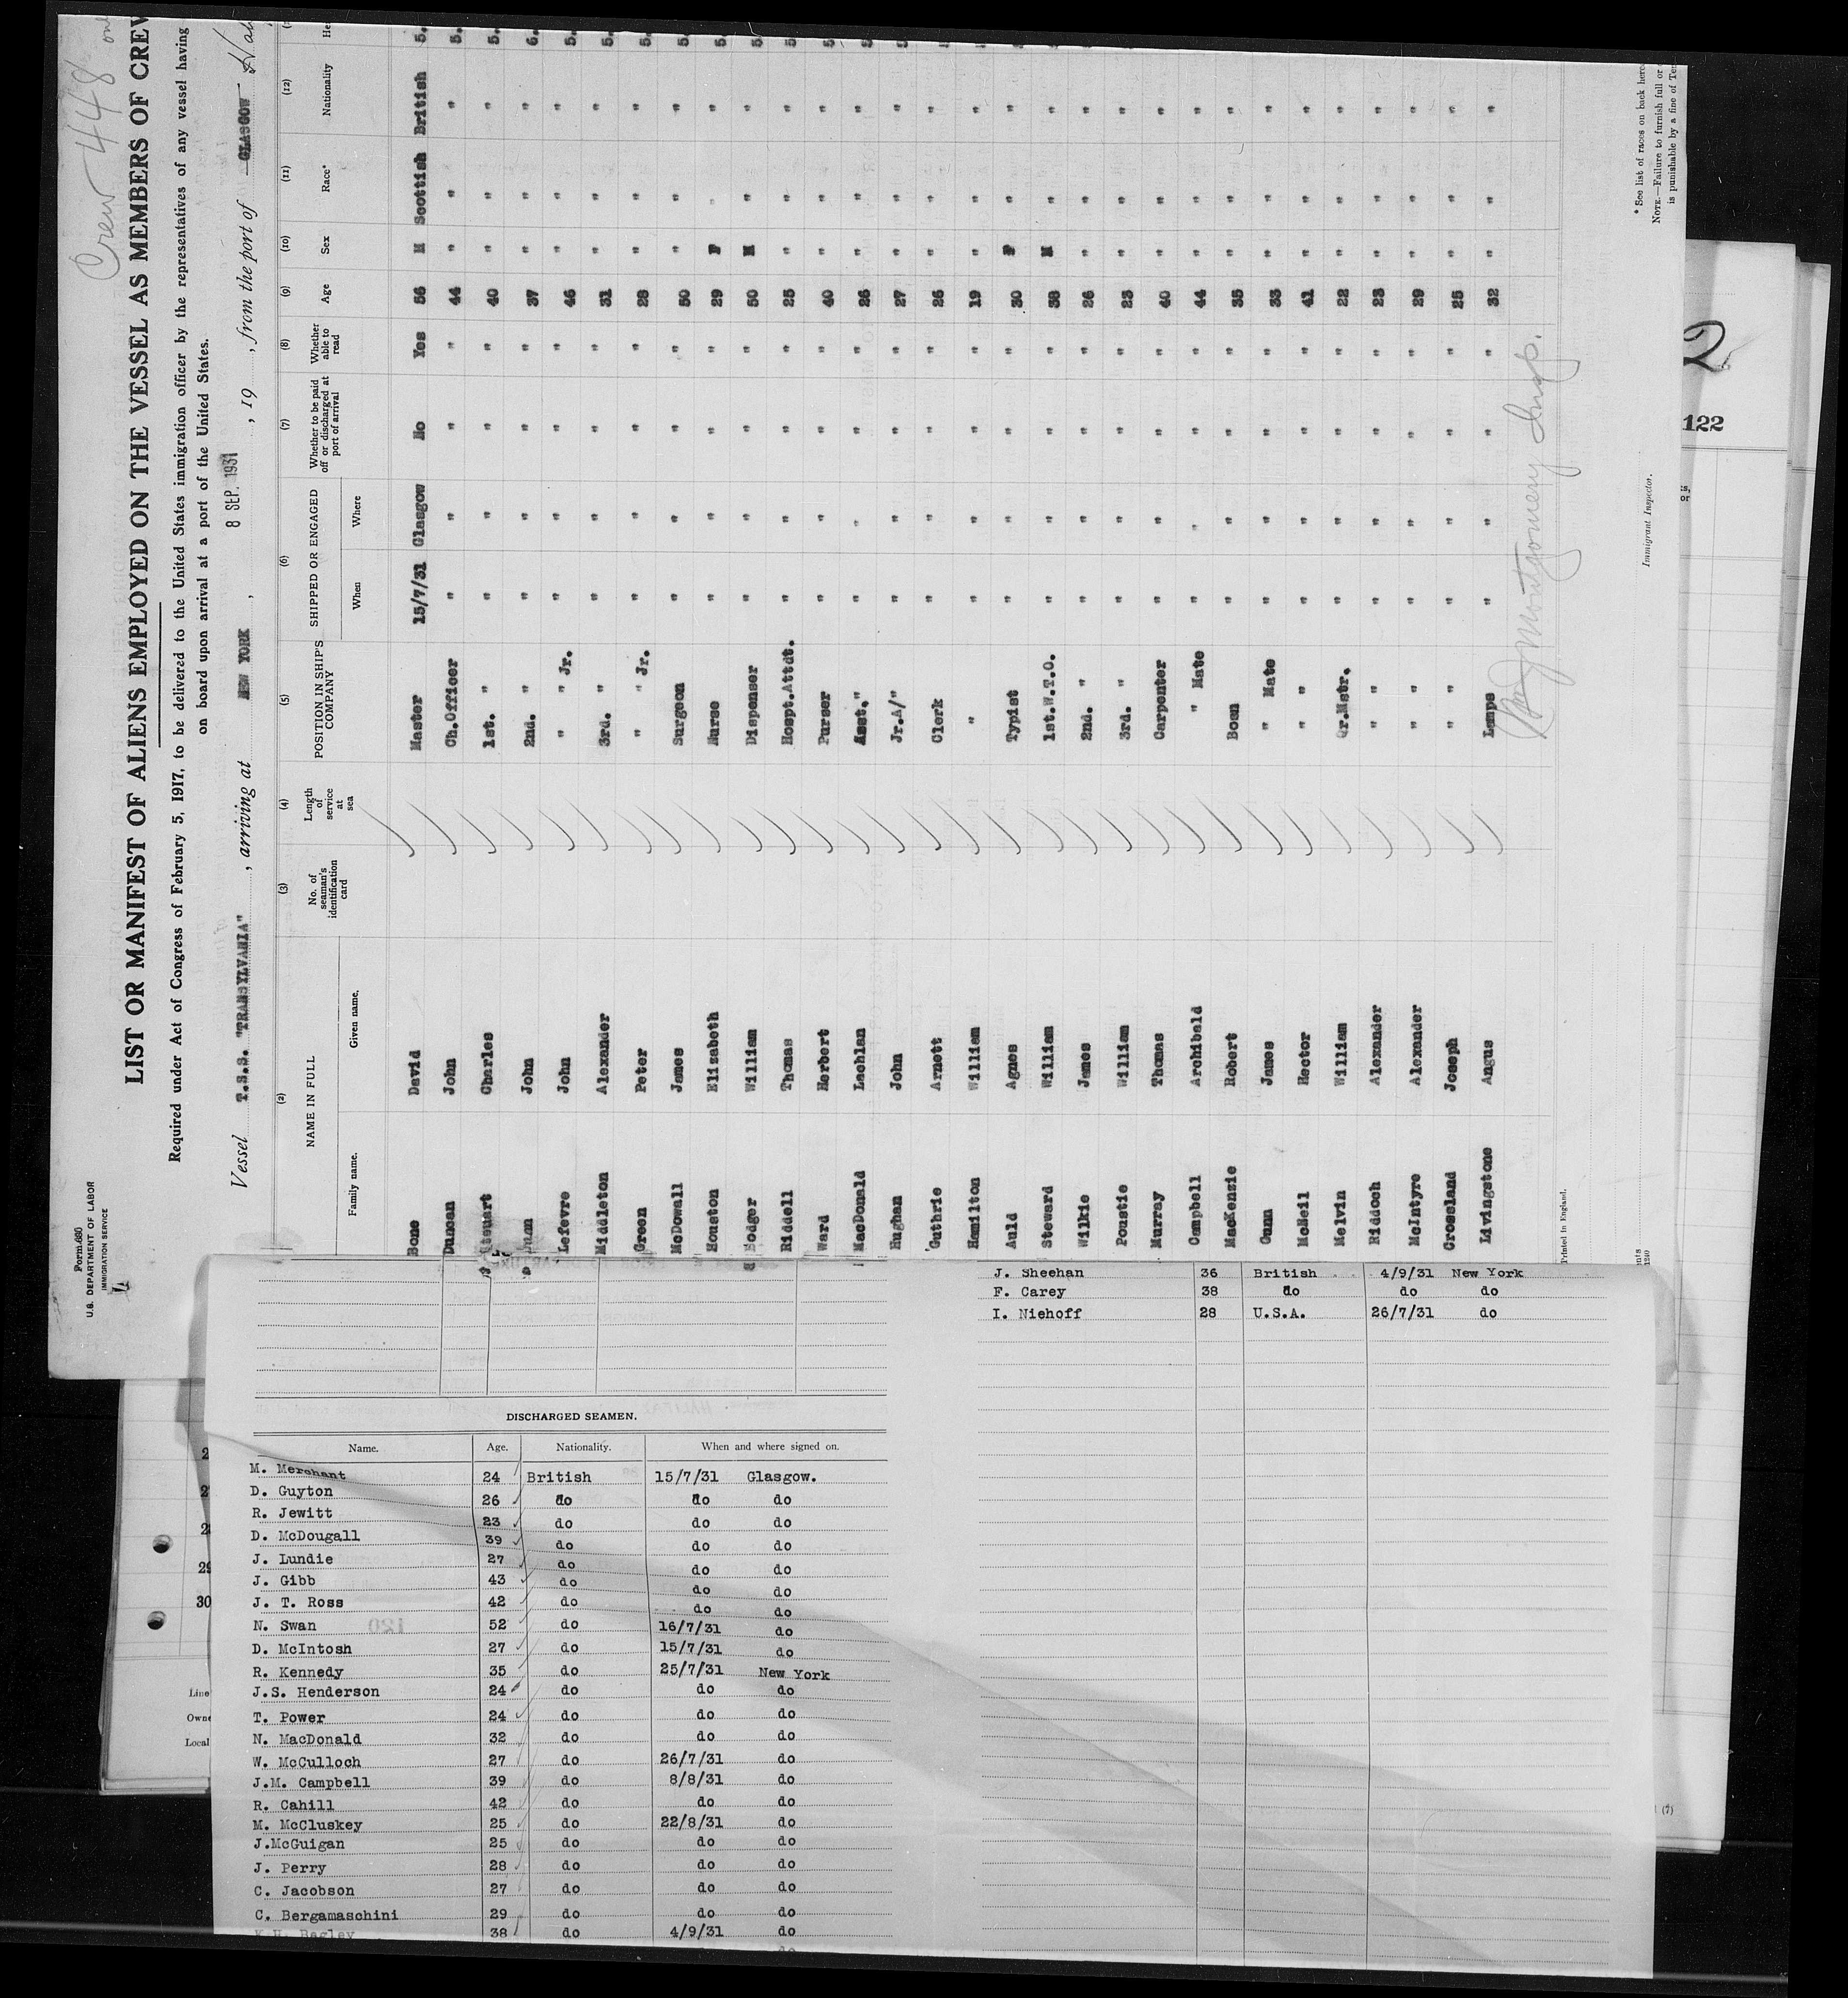 Crew 448
Form 680
U.S. DEPARTMENT OF LABOR
IMMIGRATION SERVICE
LIST OR MANIFEST OF ALIENS EMPLOYED ON THE VESSEL AS MEMBERS OF CREW
Required under Act of Congress of February 5, 1917, to be delivered to the United States immigration officer by the representatives of any vessel having
on board upon arrival at a port of the United States.
Vessel T.S.S. "TRANSYLVANIA", arriving at NEW YORK, 8 SEP. 1931, 19 , from the port of GLASGOW
(2) (3) (4) (5) (6) (7) (8) (9) (10) (11) (12)
NAME IN FULL No. of seaman's identification card Length of service at sea POSITION IN SHIP'S COMPANY SHIPPED OR ENGAGED Whether to be paid off or discharged at port of arrival Whether able to read Age Sex Race* Nationality
Family name. Given name. When Where
Bone David Master 15/7/31 Glasgow No Yes 56 M Scottish British 5.
Duncan John Ch.Officer " " " " 44 " " " 5.
Stewart Charles 1st. " " " " " 40 " " " 5.
Dunn John 2nd. " " " " " 37 " " " 6.
Lefevre John " " Jr. " " " " 46 " " " 5.
Middleton Alexander 3rd. " " " " " 31 " " " 5.
Green Peter " " Jr. " " " " 28 " " " 5.
McDowall James Surgeon " " " " 50 " " " 5.
Houston Elizabeth Nurse " " " " 29 F " " 5.
Bodger William Dispenser " " " " 50 M " " 5.
Riddell Thomas Hospt.Attdt. " " " " 25 " " " 5
Ward Herbert Purser " " " " 40 " " " 5
MacDonald Lachlan Asst." " " " " 26 " " " 5
Hughan John Jr.A/" " " " " 27 " " " 5
Guthrie Arnett Clerk " " " " 26 " " "
Hamilton William " " " " " 19 " " "
Auld Agnes Typist " " " " 30 F " "
Steward William 1st.W.T.O. " " " " 38 M " "
Wilkie James 2nd. " " " " " 26 " " "
Poustie William 3rd. " " " " " 23 " " "
Murray Thomas Carpenter " " " " 40 " " "
Campbell Archibald " Mate " " " " 44 " " "
MacKenzie Robert Bosn " " " " 35 " " "
Gunn James " Mate " " " " 33 " " "
McNeil Hector " " " " " " 41 " " "
Melvin William Qr.Mstr. " " " " 22 " " "
Riddoch Alexander " " " " " " 23 " " "
McIntyre Alexander " " " " " " 29 " " "
Crossland Joseph " " " " " " 25 " " "
Livingstone Angus Lamps " " " " 32 " " "
Montgomery Insp.
Immigrant Inspector.
Printed in England.
* See list of races on back here
NOTE.—Failure to furnish full or
is punishable by a fine of Ten
2
122
29
30
Line
Owne
Local
(7)
DISCHARGED SEAMEN.
Name. Age. Nationality. When and where signed on.
M. Merchant 24 British 15/7/31 Glasgow.
D. Guyton 26 do do do
R. Jewitt 23 do do do
D. McDougall 39 do do do
J. Lundie 27 do do do
J. Gibb 43 do do do
J. T. Ross 42 do do do
N. Swan 52 do 16/7/31 do
D. McIntosh 27 do 15/7/31 do
R. Kennedy 35 do 25/7/31 New York
J.S. Henderson 24 do do do
T. Power 24 do do do
N. MacDonald 32 do do do
W. McCulloch 27 do 26/7/31 do
J.M. Campbell 39 do 8/8/31 do
R. Cahill 42 do do do
M. McCluskey 25 do 22/8/31 do
J.McGuigan 25 do do do
J. Perry 28 do do do
C. Jacobson 27 do do do
C. Bergamaschini 29 do do do
Bagley 38 do 4/9/31 do
J. Sheehan 36 British 4/9/31 New York
F. Carey 38 do do do
I. Niehoff 28 U.S.A. 26/7/31 do